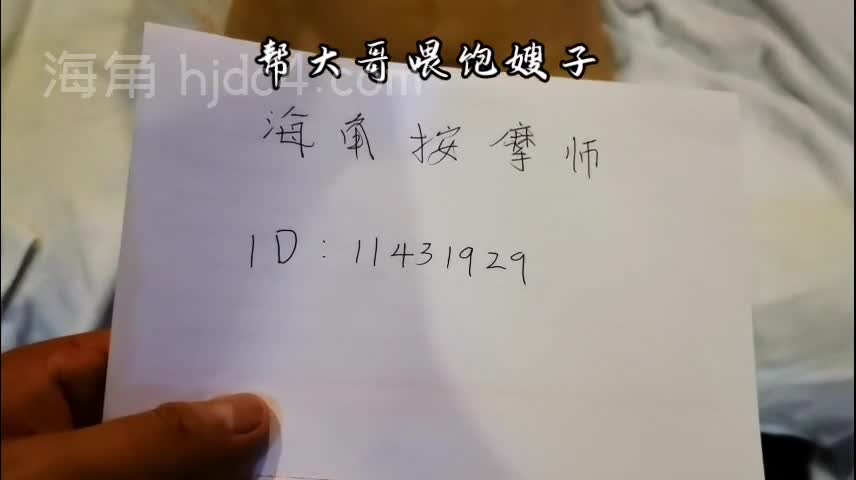 帮大哥喂饱嫂子
海角 hjdo4.com
海角按摩师
ID:11431929